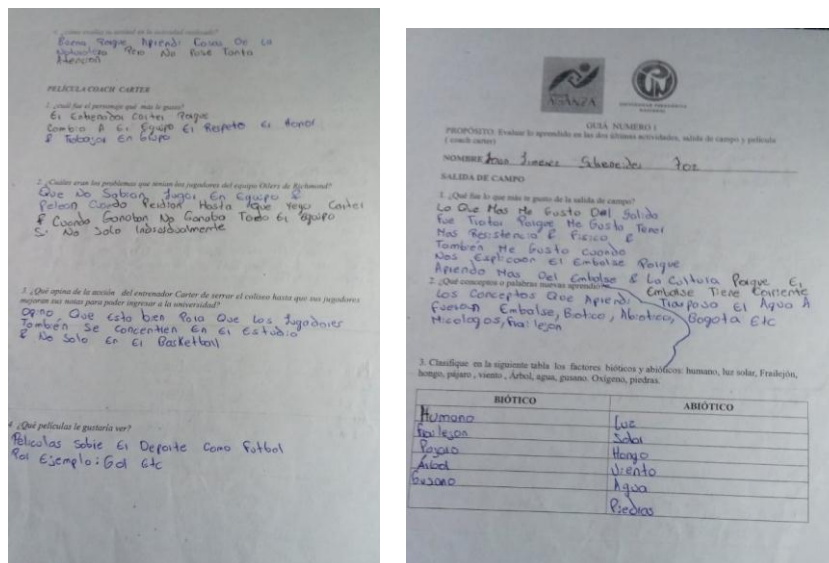 4. ¿cómo evalúa su actitud en la actividad realizada?
Buena Porque Aprendi Cosas De La
Naturaleza Pero No Puse Tanta
Atencion
PELÍCULA COACH CARTER
1. ¿cuál fue el personaje que más le gusto?
El Entrenador Carter Porque
Cambio A El Equipo El Respeto El Honor
& Trabajar En Grupo
2. ¿Cuáles eran los problemas que tenían los jugadores del equipo Oilers de Richmond?
Que No Sabian Jugar En Equipo &
Pelean Cuando Perdian Hasta Que Yego Carter
& Cuando Ganaban No Ganaba Todo El Equipo
Si No Solo Individualmente
3. ¿Qué opina de la acción del entrenador Carter de serrar el coliseo hasta que sus jugadores
mejoran sus notas para poder ingresar a la universidad?
Opino Que Esta bien Para Que Los Jugadores
Tambien Se Concentren En El Estudio
& No Solo En El Basketball
4 ¿Qué películas le gustaría ver?
Peliculas Sobre El Deporte Como Futbol
Por Ejemplo: Gol Etc
ALIANZA
UNIVERSIDAD PEDAGOGICA
NACIONAL
GUIA NUMERO 1
PROPÓSITO: Evaluar lo aprendido en las dos últimas actividades, salida de campo y película
( coach carter)
NOMBRE Jimenez 702
SALIDA DE CAMPO
1. ¿Qué fue lo que más te gusto de la salida de campo?
Lo Que Mas Me Gusto Del Salida
Fue Trotar Porque Me Gusto Tener
Mas Resistencia & Fisico &
Tambien Me Gusto Cuando
Nos Explicaon El Embalse Porque
Aprendo Mas Del Embalse & La Cultura Porque El
Embalse Tiene Corriente
2. ¿Qué conceptos o palabras nuevas aprendió?
Los Conceptos Que Aprendi Traspasa El Agua A
Fueron Embalse, Biotico, Abiotico, Bogota Etc
Micologos, frailejon
3. Clasifique en la siguiente tabla los factores bióticos y abióticos: humano, luz solar, Frailejón,
hongo, pájaro , viento , Árbol, agua, gusano. Oxígeno, piedras.
BIÓTICO ABIÓTICO
Humano Luz
frailejon Solar
Pajaro Hongo
Árbol Viento
Gusano Agua
Piedras